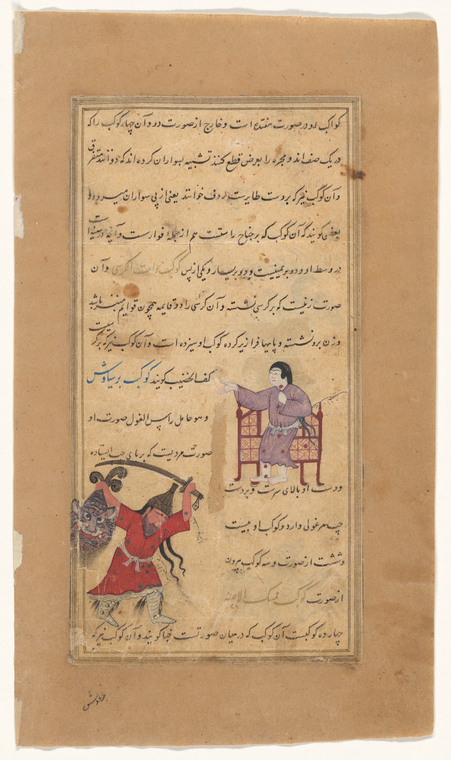 کواکب او در صورت هفتده است و خارج از صورت دو و آن چهار کوکب را که
در یک صف اند و مجره را بعرض قطع کنند تشبیه بسواران کرده اند که
و آن کوکب نیر که بر دست طایرست ردف خوانند یعنی از پی سواران میرود و
بعضی گویند که آن کوکب که بر جناح راستست هم از جمله فوارس است و آنچه
در وسط او و دو بر یمینست و دو بر یسار و یکی از پس کوکب ذات الکرسی و آن
صورت زنیست که بر کرسی نشسته و آن کرسی را دو قایمه همچون قوایم منبر باشد
و زن برو نشسته و پایها فرازیر کرده کوکب او سیزده است و آن کوکب نیر که بر
کف الخضیب گویند کوکب برساوش
و هو حامل راس الغول صورت او
صورت مردیست که بر پای ایستاده
و دست او بالای سرست و بر دست
چپ سر غولی دارد و کوکب او بیست
و شش است از صورت و سه کوکب بیرون
از صورت کوکب ممسک الاعنه
چهارده کوکبست آن کوکب که در میان صورتست گویند و آن کوکب نیر که